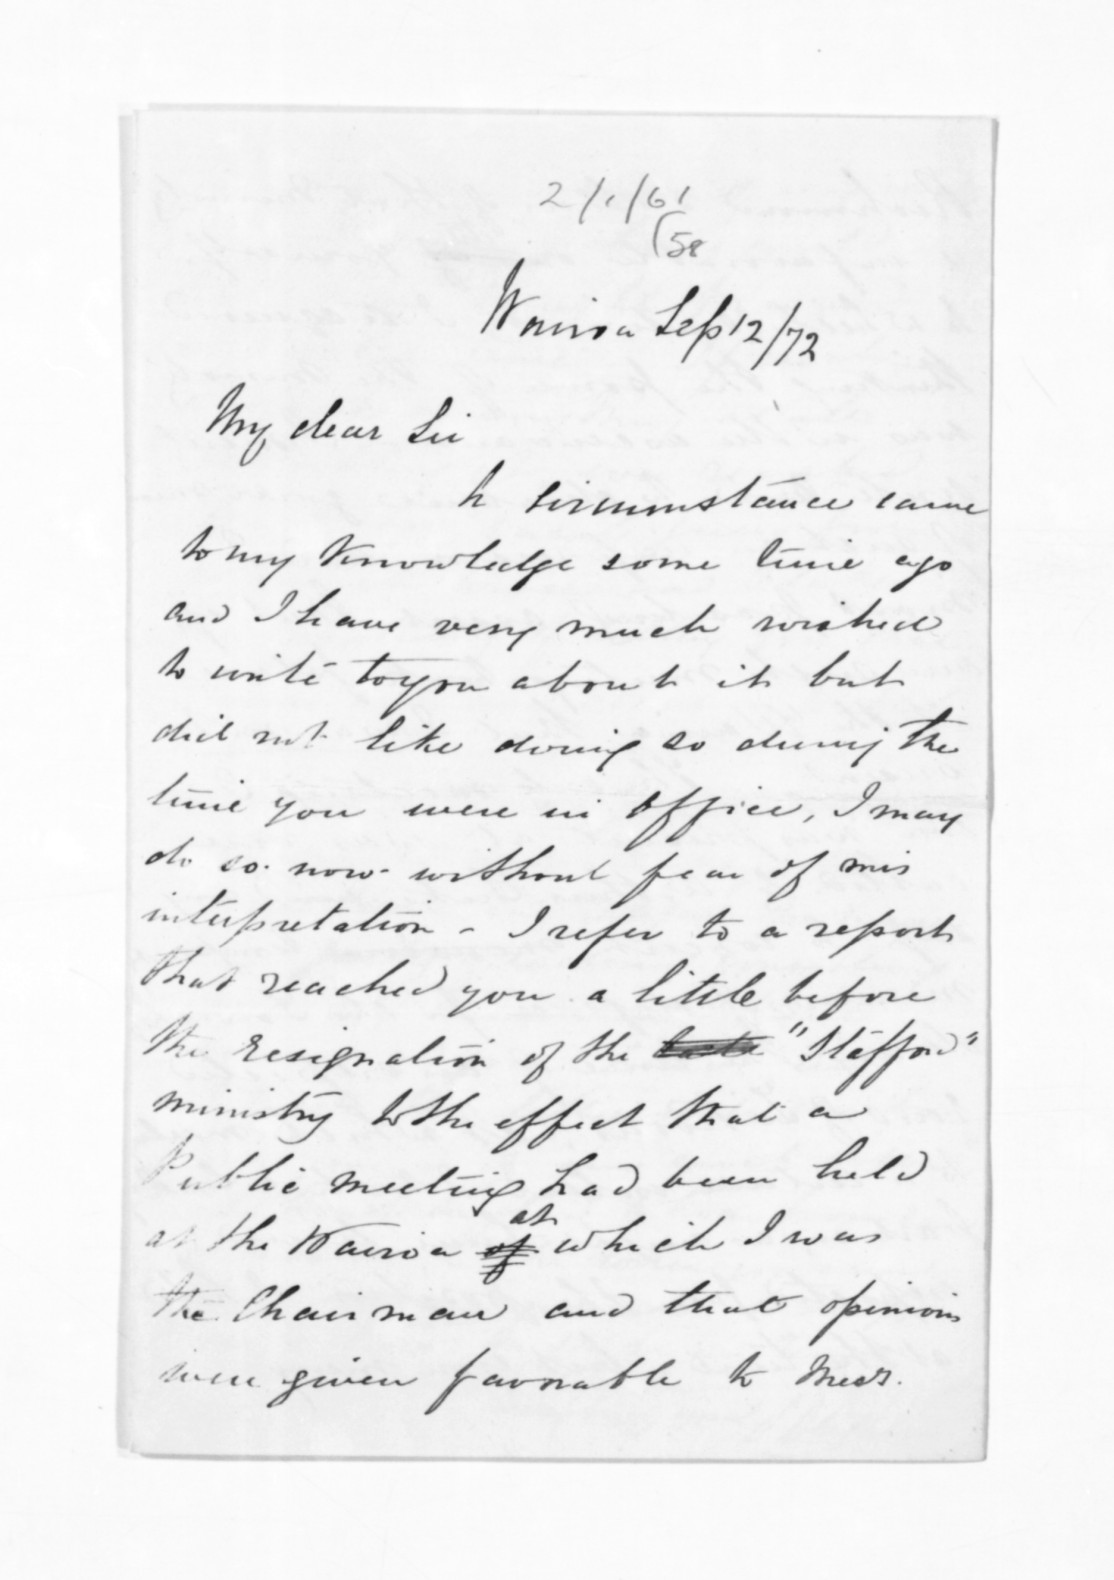 2/1/61
(58
Wairoa Sep 12/72
My dear Sir
A circumstance came
to my knowledge some time ago
and I have very much wished
to write to you about it but
did not like doing so during the
time you were in office, I may
do so now without fear of mis
interpretation - I refer to a report
that reached you a little before
the resignation of the "Stafford"
ministry to the effect that a
Public meeting had been held
at
at the Wairoa of which I was
the Chairman and that opinions
were given favorable to Messrs.